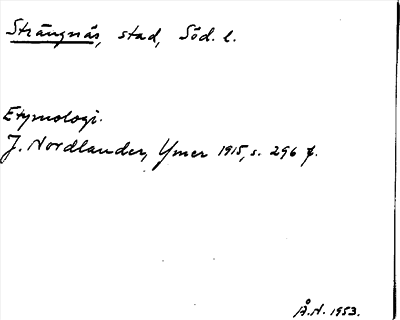 Strängnäs, stad, Söd. l.
Etymologi.
J. Nordlander, Ymer 1915, s. 296 f.
Å.N. 1953.